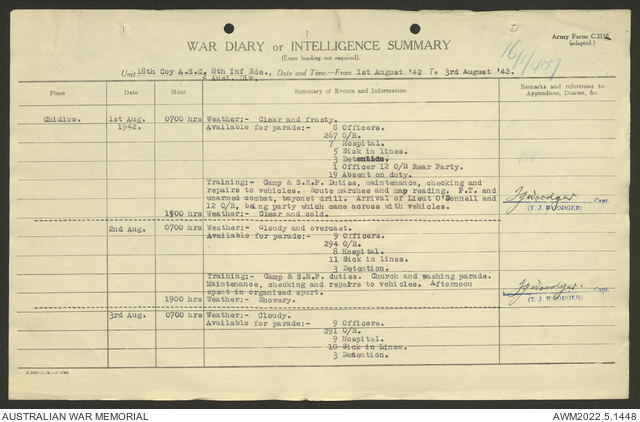 Army Form C.2118
(adapted.)
WAR DIARY or INTELLIGENCE SUMMARY
(Erase heading not required).
16/1/407
Unit 18th Coy A.S.C., 8th Inf Bde., Date and Time.—From 1st August '42 To 3rd August '42.
2 Aust. Div.
Place Date Hour Summary of Events and Information Remarks and references to Appendices, Diaries, &c.
Chidlow. 1st Aug. 0700 hrs Weather:- Clear and frosty.
1942. Available for parade:- 8 Officers.
267 O/R.
7 Hospital.
5 Sick in lines.
3 Detention.
1 Officer 12 O/R Rear Party.
19 Absent on duty.
Training:- Camp & S.R.P. Duties, maintenance, checking and
repairs to vehicles. Route marches and map reading. P.T. and
unarmed combat, bayonet drill. Arrival of Lieut O'Donnell and
12 O/R, being party which came across with vehicles.
TJWoodger Capt.
(T. J. WOODGER)
1900 hrs Weather:- Clear and cold.
2nd Aug. 0700 hrs Weather:- Cloudy and overcast.
Available for parade:- 9 Officers.
294 O/R.
8 Hospital.
11 Sick in lines.
3 Detention.
Training:- Camp & S.R.P. duties. Church and washing parade.
Maintenance, checking and repairs to vehicles. Afternoon
spent in organised sport.
TJWoodger. Capt.
(T. J. WOODGER)
1900 hrs Weather:- Showery.
3rd Aug. 0700 hrs Weather:- Cloudy.
Available for parade:- 9 Officers.
291 O/R.
9 Hospital.
10 Sick in Lines.
3 Detention.
AUSTRALIAN WAR MEMORIAL
AWM2022.5.1448